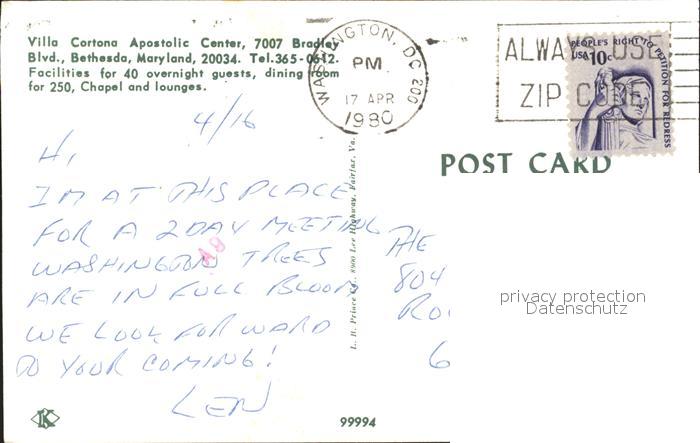 Villa Cortona Apostolic Center, 7007 Bradley
Blvd., Bethesda, Maryland, 20034. Tel.365-0612.
Facilities for 40 overnight guests, dining room
for 250, Chapel and lounges.
WASHINGTON, DC 200
PM
17 APR
1980
ALWAYS USE
ZIP CODE
PEOPLE'S RIGHT TO PETITION FOR REDRESS
USA 10c
POST CARD
4/16
HI,
I'M AT THIS PLACE
FOR A 2 DAY MEETING
WASHINGTON TREES
ARE IN FULL BLOOM
WE LOOK FORWARD
TO YOUR COMING!
LEN
L. B. Prince Co., 8900 Lee Highway, Fairfax, Va.
THE
804
RO
6
privacy protection
Datenschutz
K
99994